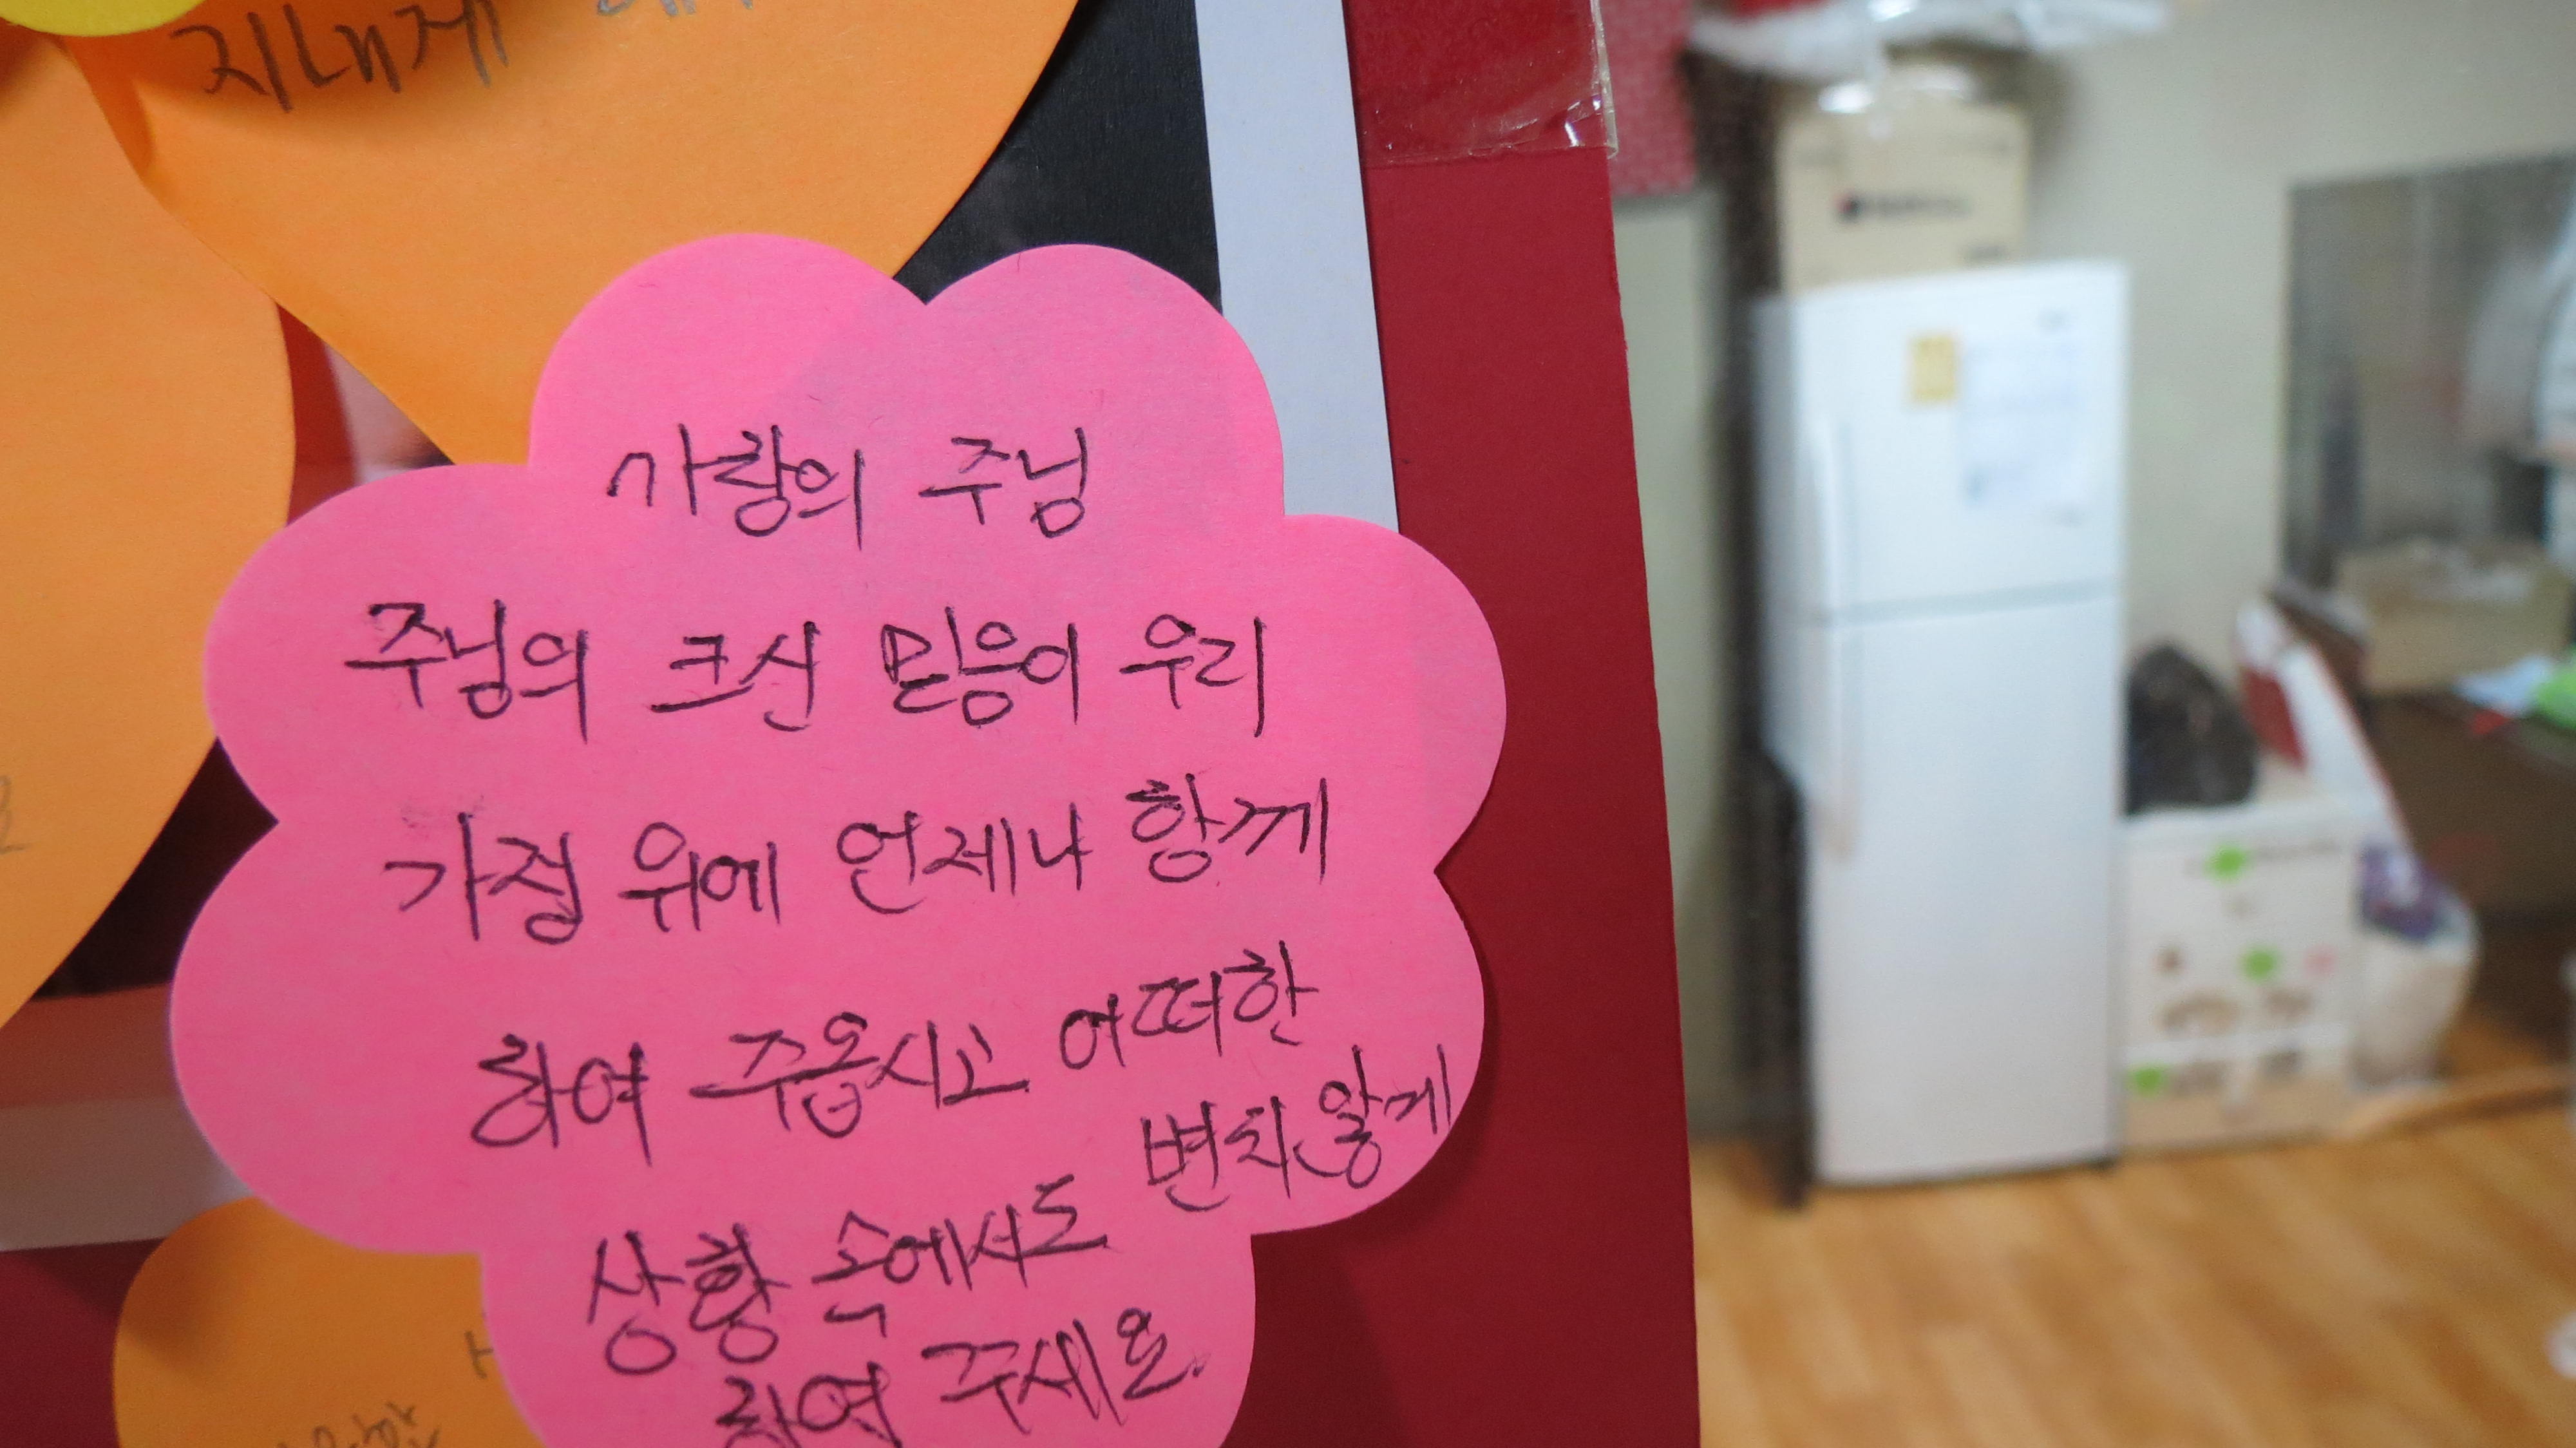 지내게
사랑의 주님
주님의 크신 믿음이 우리
가정 위에 언제나 항께
하여 주옵시고 어떠한
상황 속에서도 변치않게
하여 주세요.